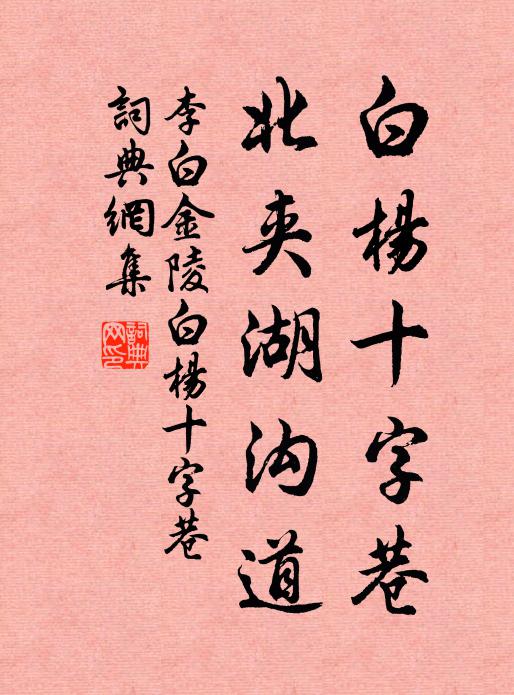 白楊十字巷
北夹湖沟道
李白金陵白楊十字巷
詞典網集
詞典网印